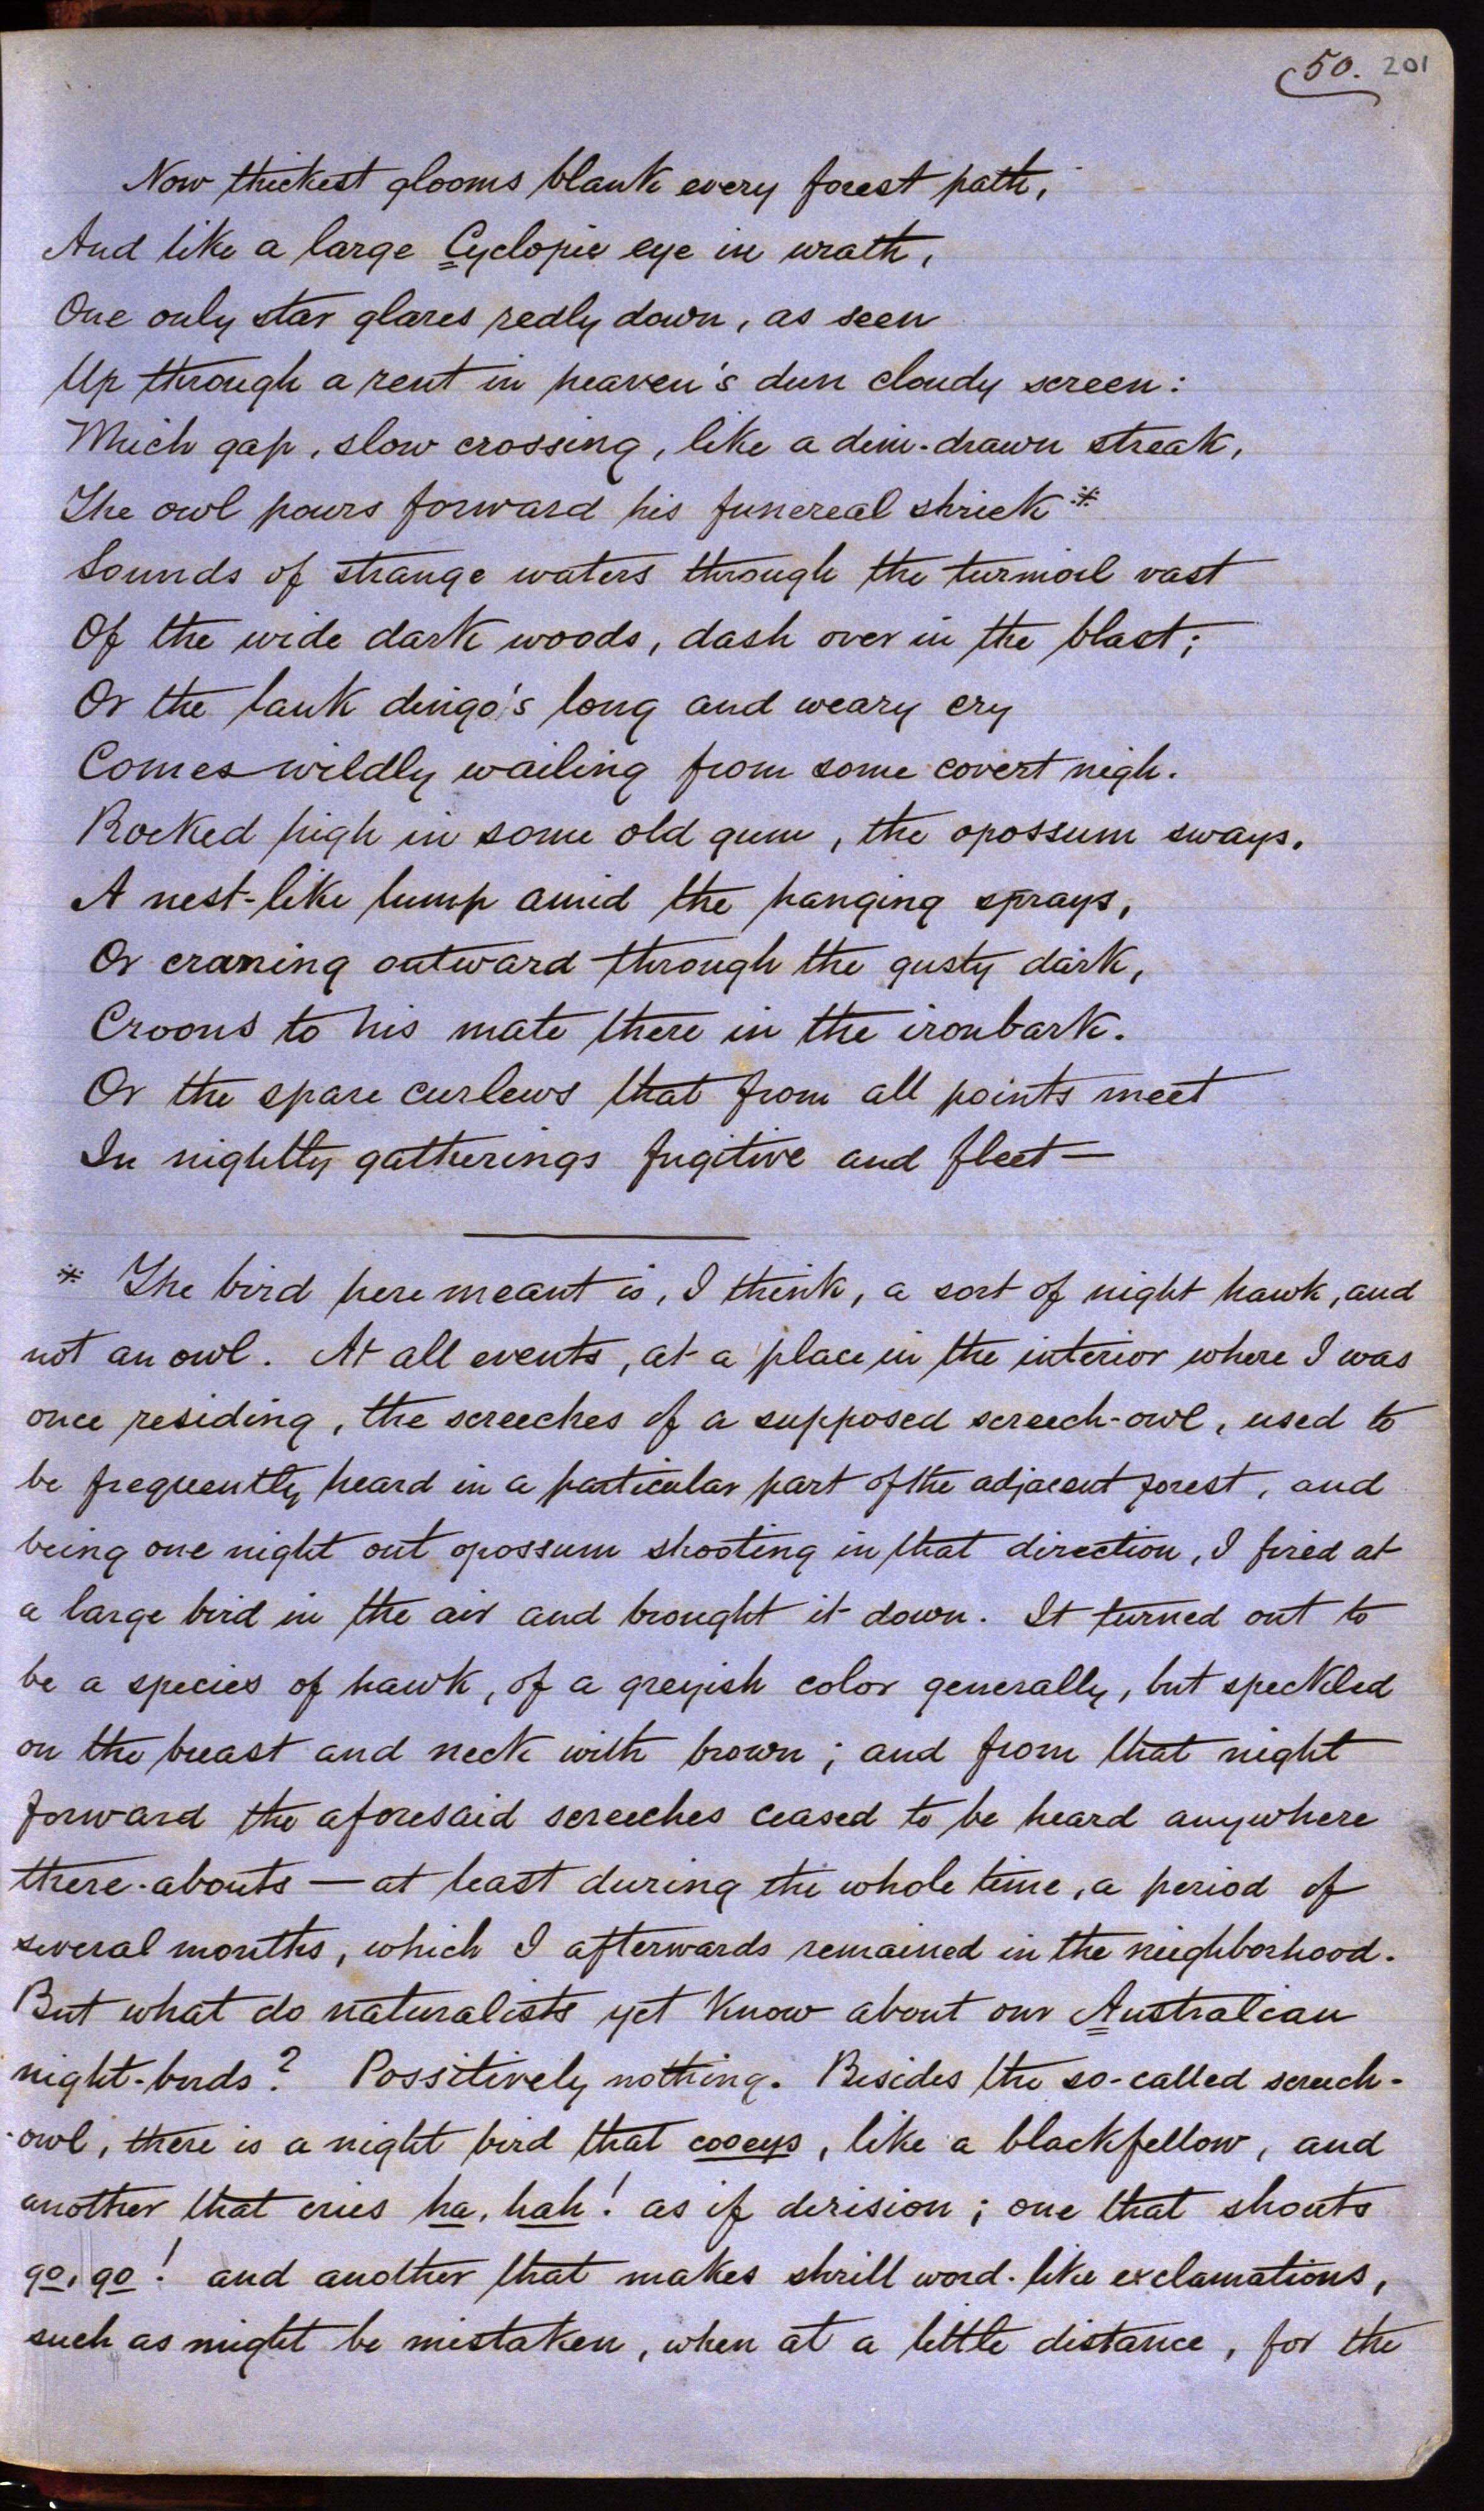 50. 201
Now thickest glooms blank every forest path,
And like a large Cyclopic eye in wrath,
One only star glares redly down, as seen
Up through a rent in heaven's dun cloudy screen:
Which gap, slow crossing, like a dim-drawn streak,
The owl pours forward his funereal shriek *
Sounds of strange waters through the turmoil vast
Of the wide dark woods, dash over in the blast;
Or the lank dingo's long and weary cry
Comes wildly wailing from some covert nigh.
Rocked high in some old gum, the opossum sways,
A nest-like lump amid the hanging sprays,
Or craning outward through the gusty dark,
Croons to his mate there in the ironbark.
Or the spare curlews that from all points meet
In nightly gatherings fugitive and fleet—
* The bird here meant is, I think, a sort of night hawk, and
not an owl. At all events, at a place in the interior where I was
once residing, the screeches of a supposed screech-owl, used to
be frequently heard in a particular part of the adjacent forest, and
being one night out opossum shooting in that direction, I fired at
a large bird in the air and brought it down. It turned out to
be a species of hawk, of a greyish color generally, but speckled
on the breast and neck with brown; and from that night
forward the aforesaid screeches ceased to be heard anywhere
there-abouts — at least during the whole time, a period of
several months, which I afterwards remained in the neighborhood.
But what do naturalists yet know about our Australian
night-birds? Possitively nothing. Besides the so-called screech-
-owl, there is a night bird that cooeys, like a blackfellow, and
another that cries ha, hah! as if derision; one that shouts
go, go! and another that makes shrill word-like exclamations,
such as might be mistaken, when at a little distance, for the